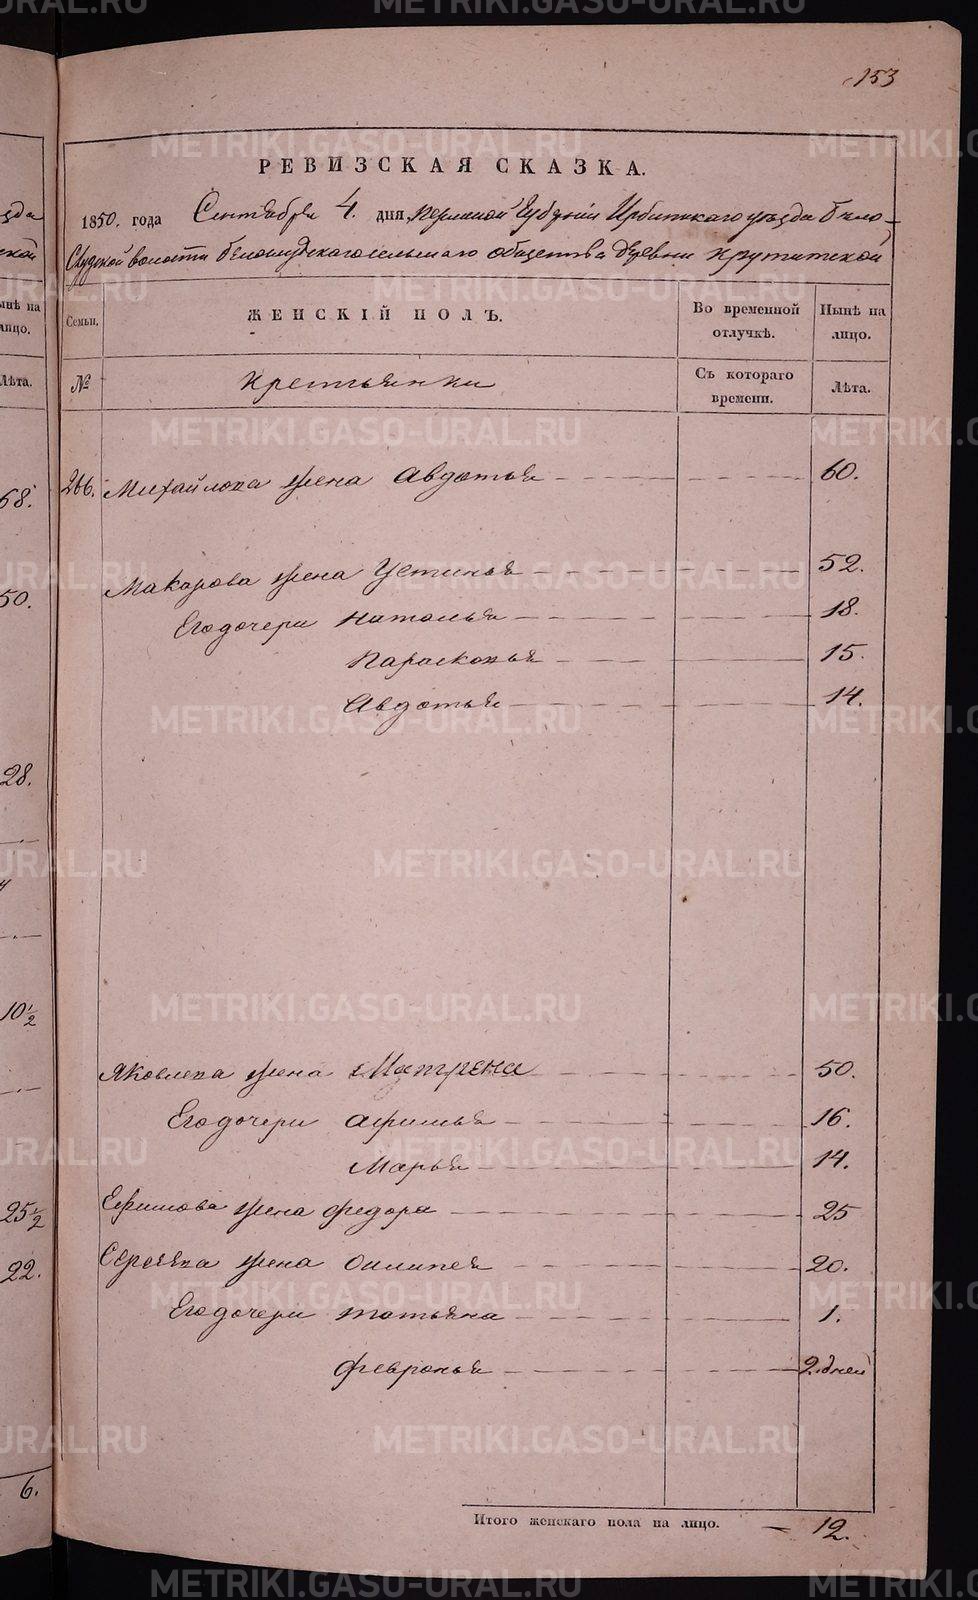 153
РЕВИЗСКАЯ СКАЗКА.
1850. года Сентября 4. дня, Пермской Губернiи Ирбитскаго уѣзда Бело-
Слудской волости Белослудскаго сельскаго общества деревни Крутитской
Семьи. ЖЕНСКІЙ ПОЛЪ. Во временной отлучкѣ. Нынѣ на лицо.
№ Крестьянки Съ котораго времени. Лѣта.
266. Михайлова жена Авдотья 60.
Макарова жена Устинья 52.
Его дочери Наталья 18.
Парасковья 15.
Авдотья 14.
Яковлева жена Матрена 50.
Его дочери Афимья 16.
Марья 14.
Ефимова жена Федора 25
Сергѣева жена 20.
Его дочери Татьяна 1.
Февронья 2. дней
Итого женскаго пола на лицо. — 12.
уѣзда
ской
Нынѣ на
лицо.
Лѣта.
68.
50.
28.
10 1/2
25 1/2
22.
6.
METRIKI.GASO-URAL.RU